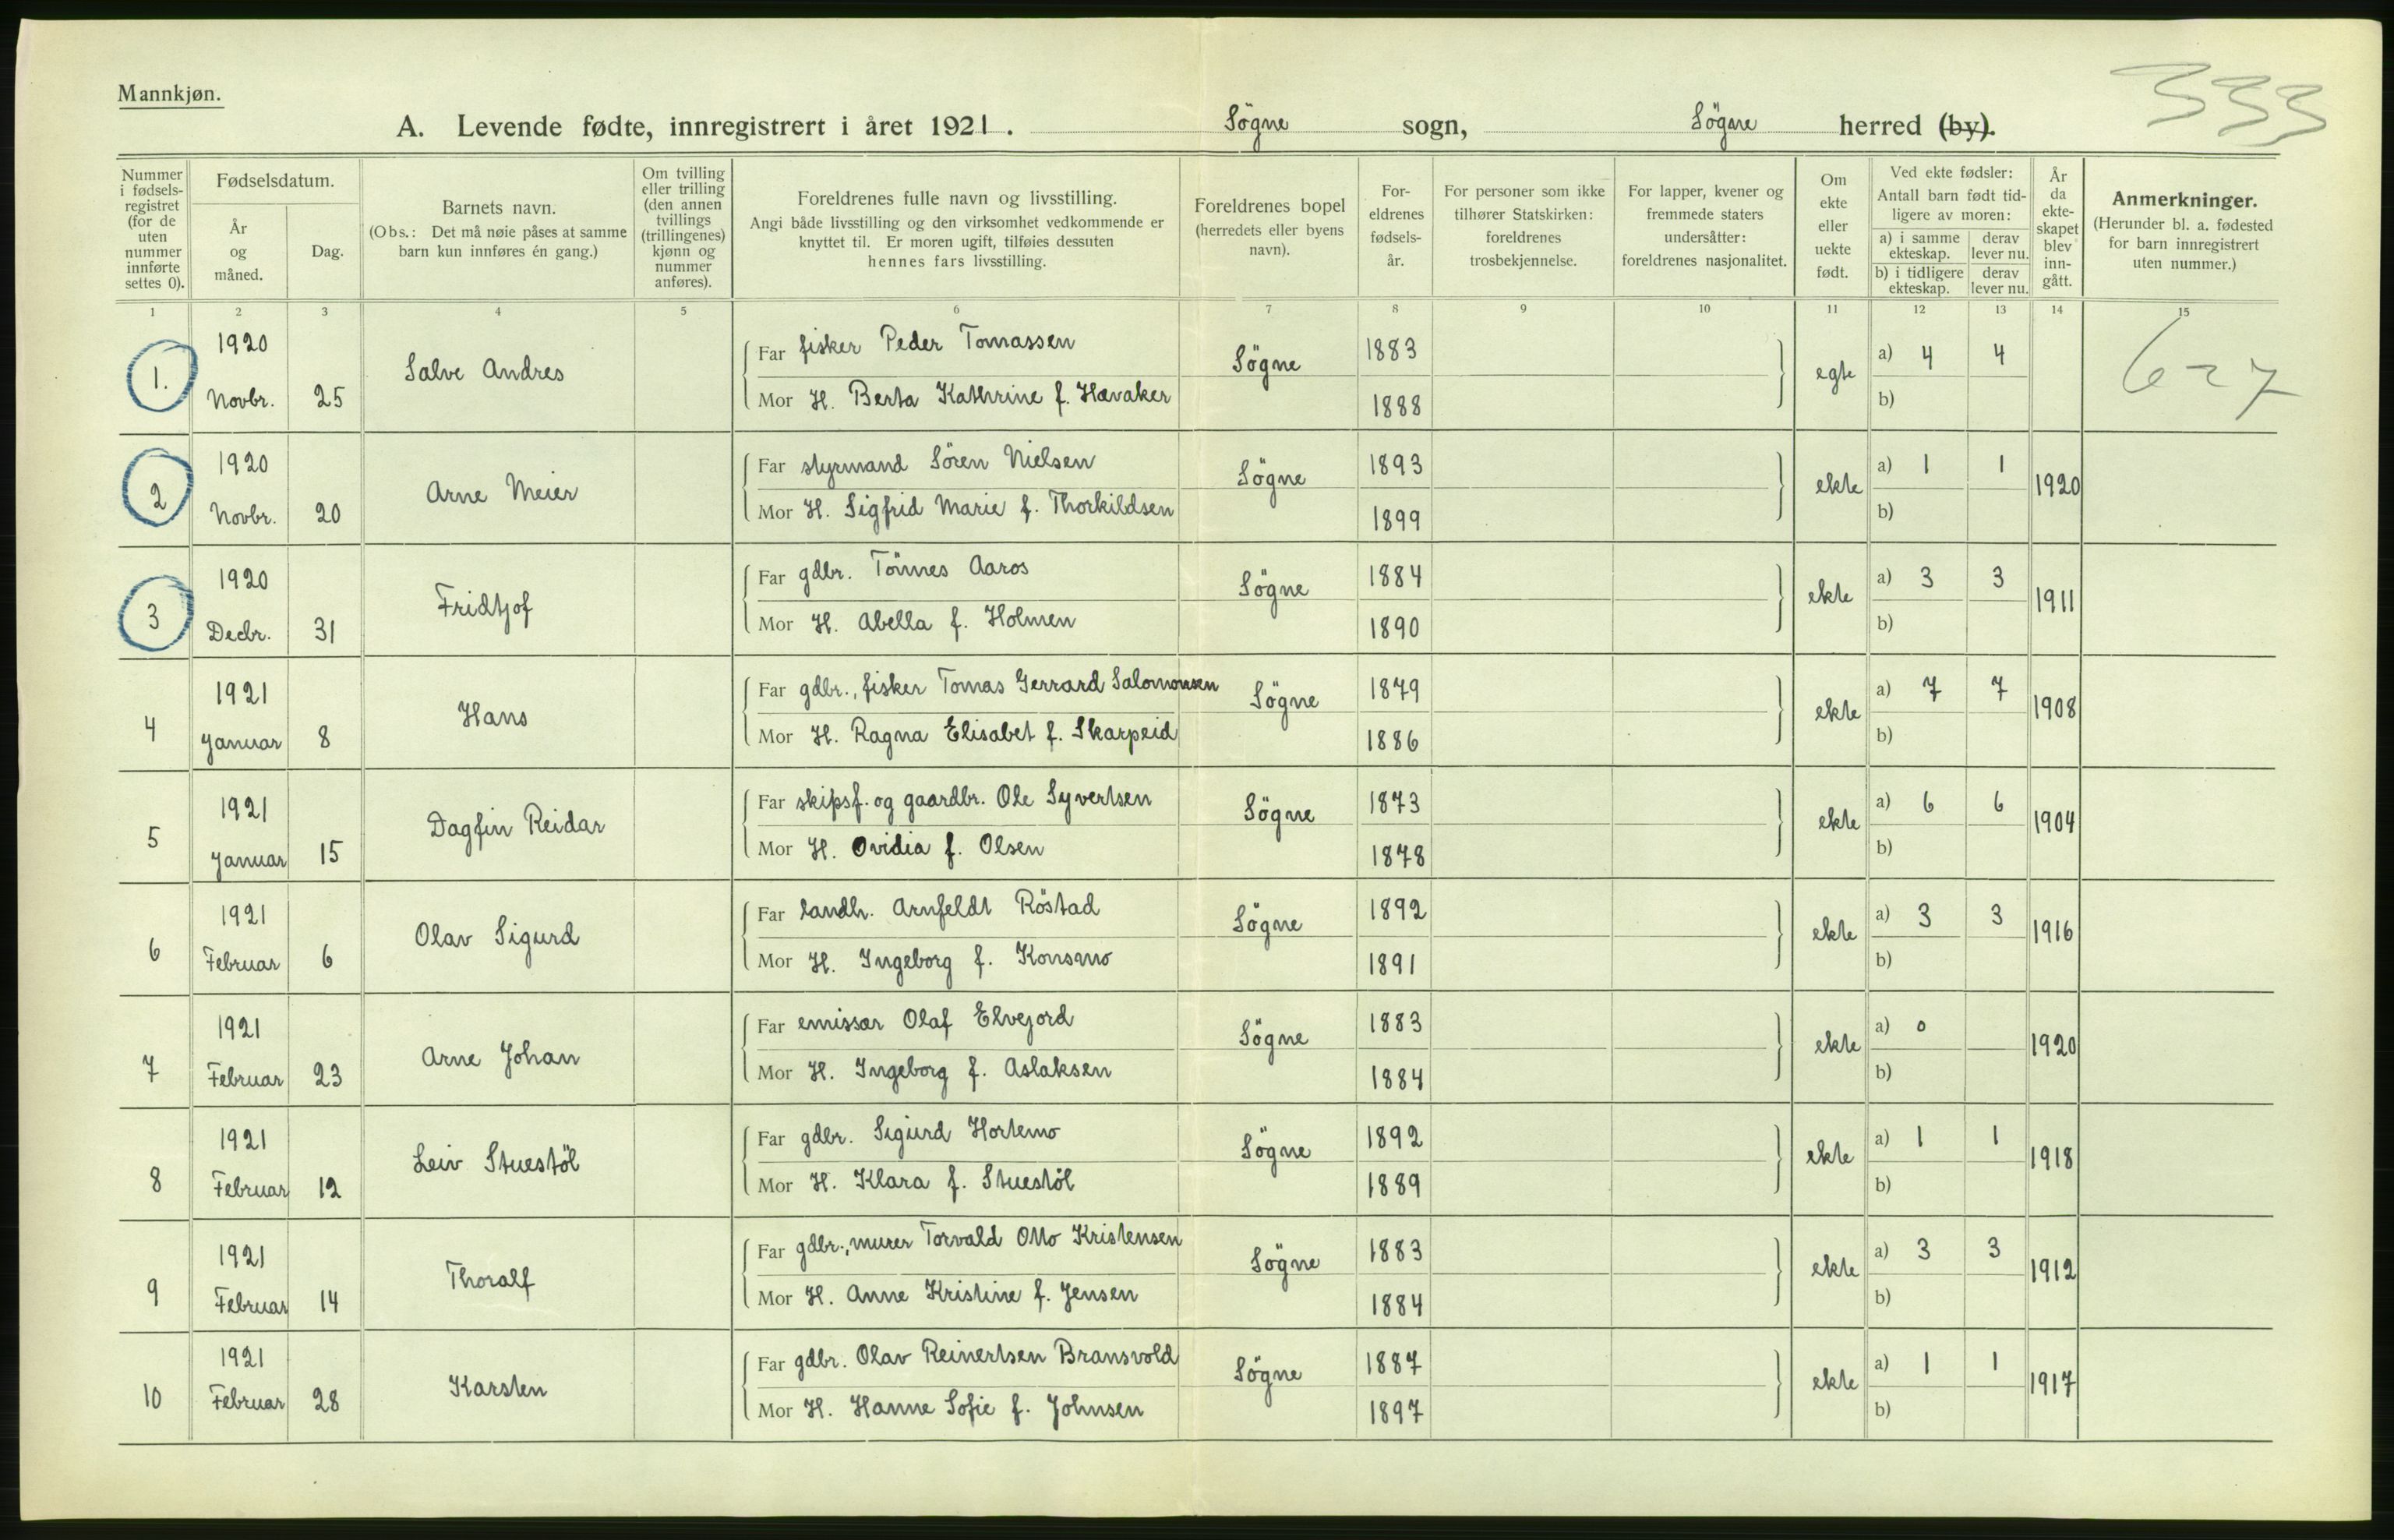 Mannkjøn.
333
A. Levende fødte, innregistrert i året 1921. Søgne sogn, Søgne herred (by).
Nummer i fødsels-registret (for de uten nummer innførte settes 0).
Fødselsdatum.
År og måned.
Dag.
Barnets navn.
(Obs.: Det må nøie påses at samme barn kun innføres én gang.)
Om tvilling eller trilling (den annen tvillings (trillingenes) kjønn og nummer anføres).
Foreldrenes fulle navn og livsstilling.
Angi både livsstilling og den virksomhet vedkommende er knyttet til. Er moren ugift, tilføies dessuten hennes fars livsstilling.
Foreldrenes bopel (herredets eller byens navn).
For-eldrenes fødsels-år.
For personer som ikke tilhører Statskirken: foreldrenes trosbekjennelse.
For lapper, kvener og fremmede staters undersåtter: foreldrenes nasjonalitet.
Om ekte eller uekte født.
Ved ekte fødsler:
Antall barn født tid-ligere av moren:
a) i samme ekteskap. derav lever nu.
b) i tidligere ekteskap. derav lever nu.
År da ekte-skapet blev inn-gått.
Anmerkninger.
(Herunder bl. a. fødested for barn innregistrert uten nummer.)
1 2 3 4 5 6 7 8 9 10 11 12 13 14 15
1. 1920 Novbr. 25 Salve Andres
Far fisker Peder Tomassen Søgne 1883 egte a) 4 4 627
Mor H. Berta Kathrine f. Hævaker 1888 b)
2 1920 Novbr. 20 Arne Meier
Far styrmand Sören Nielsen Søgne 1893 ekte a) 1 1 1920
Mor H. Sigfrid Marie f. Thorkildsen 1899 b)
3 1920 Decbr. 31 Fridtjof
Far gdbr. Tönnes Aaros Søgne 1884 ekte a) 3 3 1911
Mor H. Abella f. Holmen 1890 b)
4 1921 Januar 8 Hans
Far gdbr., fisker Tomas Gerrard Salomonsen Søgne 1879 ekte a) 7 7 1908
Mor H. Ragna Elisabet f. Skarpeid 1886 b)
5 1921 Januar 15 Dagfin Reidar
Far skipsf. og gaardbr. Ole Syvertsen Søgne 1873 ekte a) 6 6 1904
Mor H. Ovidia f. Olsen 1878 b)
6 1921 Februar 6 Olav Sigurd
Far landh. Arnfeldt Röstad Søgne 1892 ekte a) 3 3 1916
Mor H. Ingeborg f. Konsmo 1891 b)
7 1921 Februar 23 Arne Johan
Far emissær Olaf Elvejord Søgne 1883 ekte a) 0 1920
Mor H. Ingeborg f. Aslaksen 1884 b)
8 1921 Februar 12 Leiv Stuestöl
Far gdbr. Sigurd Hortemo Søgne 1892 ekte a) 1 1 1918
Mor H. Klara f. Stuestöl 1889 b)
9 1921 Februar 14 Thoralf
Far gdbr., murer Torvald Otto Kristensen Søgne 1883 ekte a) 3 3 1912
Mor H. Anne Kristine f. Jensen 1884 b)
10 1921 Februar 28 Karsten
Far gdbr. Olav Reinertsen Bransvold Søgne 1887 ekte a) 1 1 1917
Mor H. Hanne Sofie f. Johnsen 1897 b)